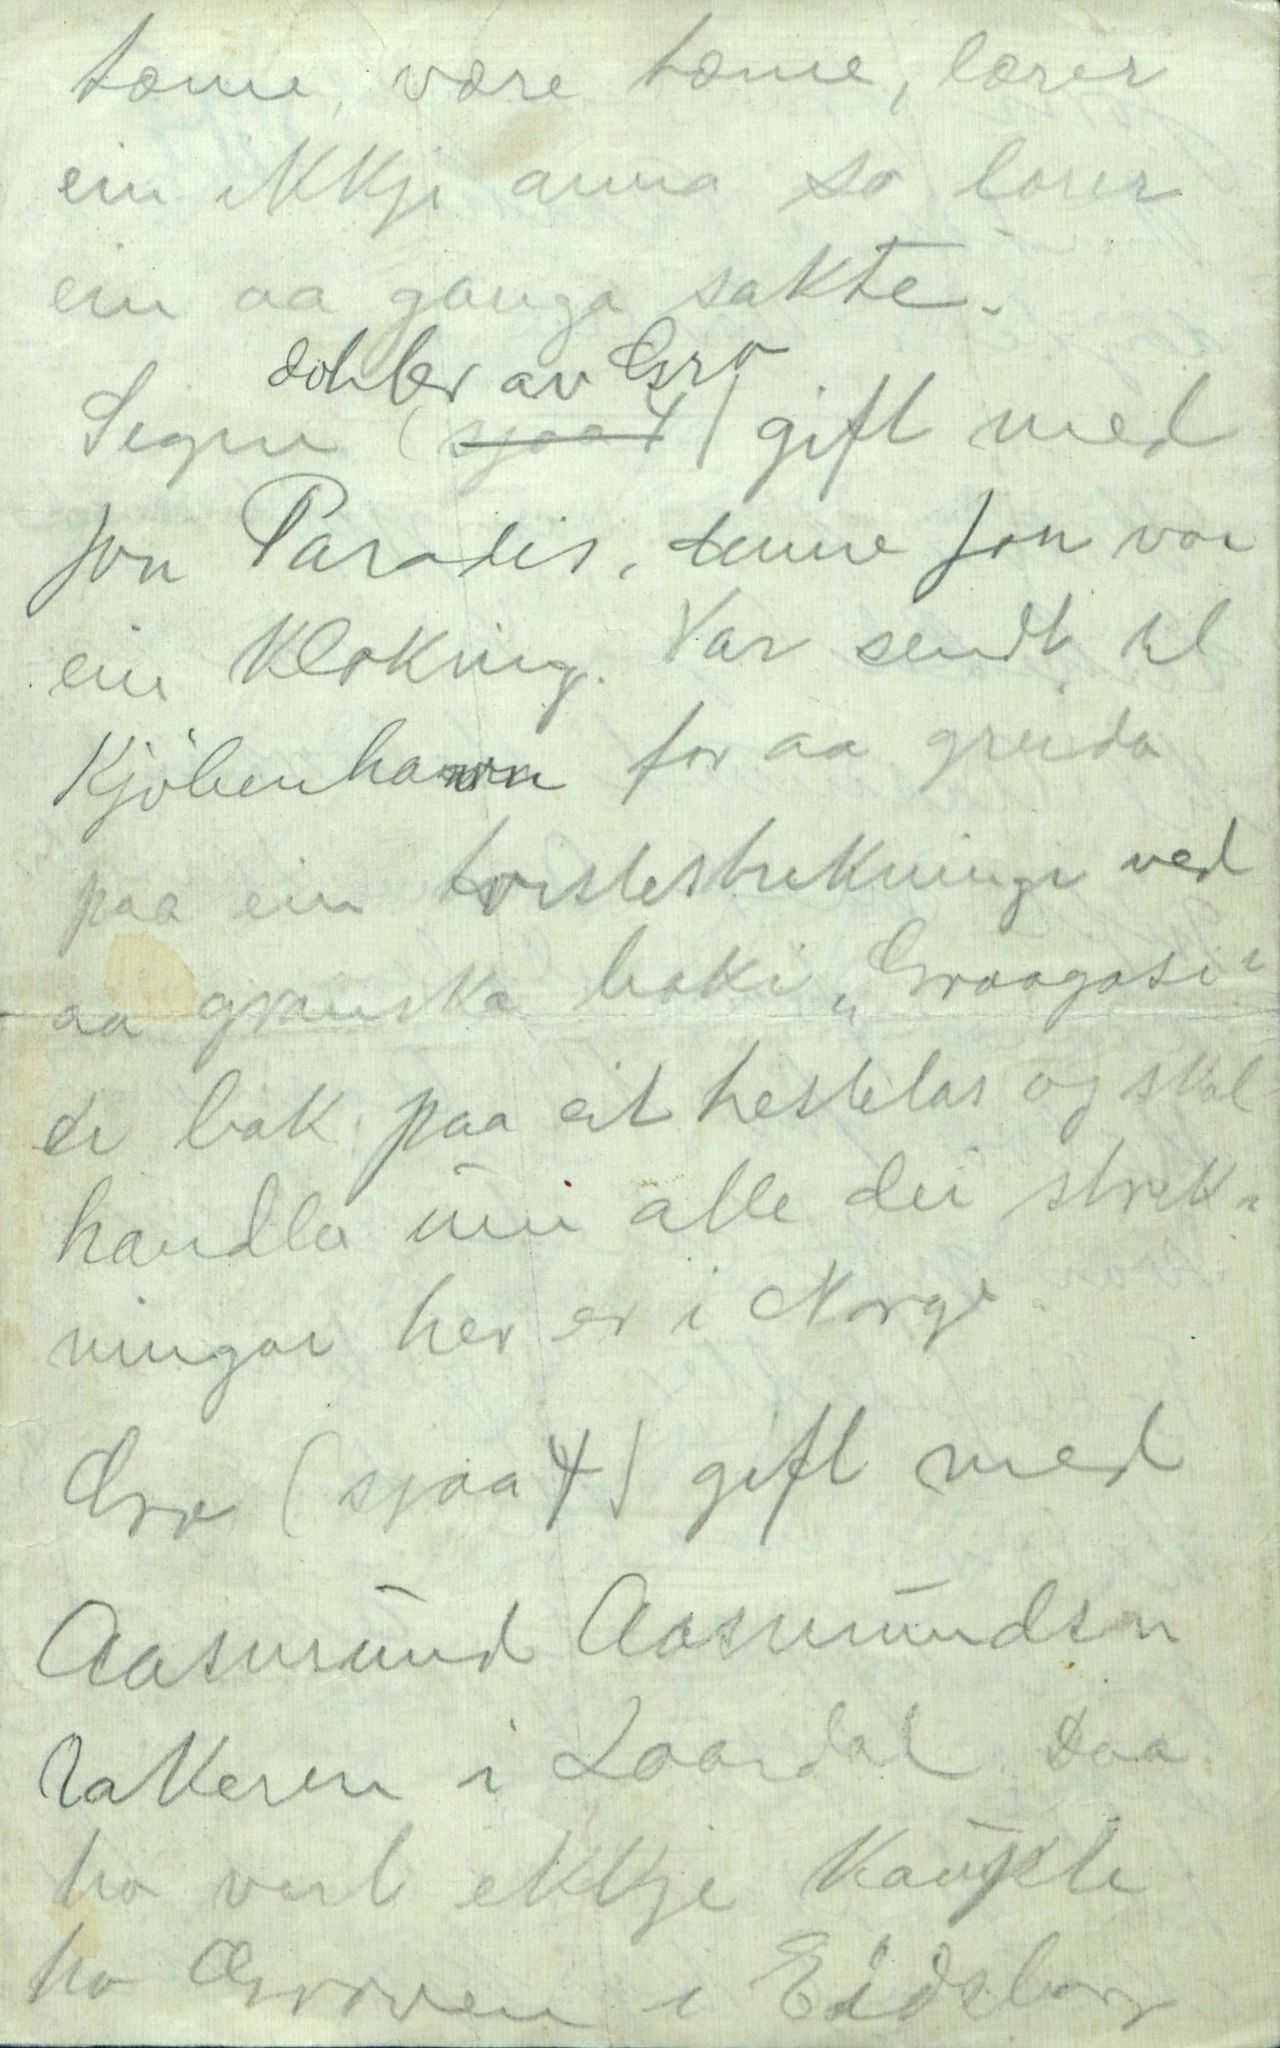 tome, være tome, lærer
ein ikkje anna so lærer
ein aa ganga sakte.
dotter av Gro
Signe (sjaa 4) gift med
Jon Paradis, denne Jon var
ein kloking. Var sendt til
Kjöbenhavn for aa greida
paa ein tvistestrekninge ved
aa granska boki „Graagasi"
ei bok paa eit hestelas og skal
handla um alle dei strek-
ningar her er i Norge
Gro (sjaa 4) gift med
Aasmund Aasmundson
Rakeren i Laardal Daa
ho vart ekkje kaupte
ho Groven i Eidsborg